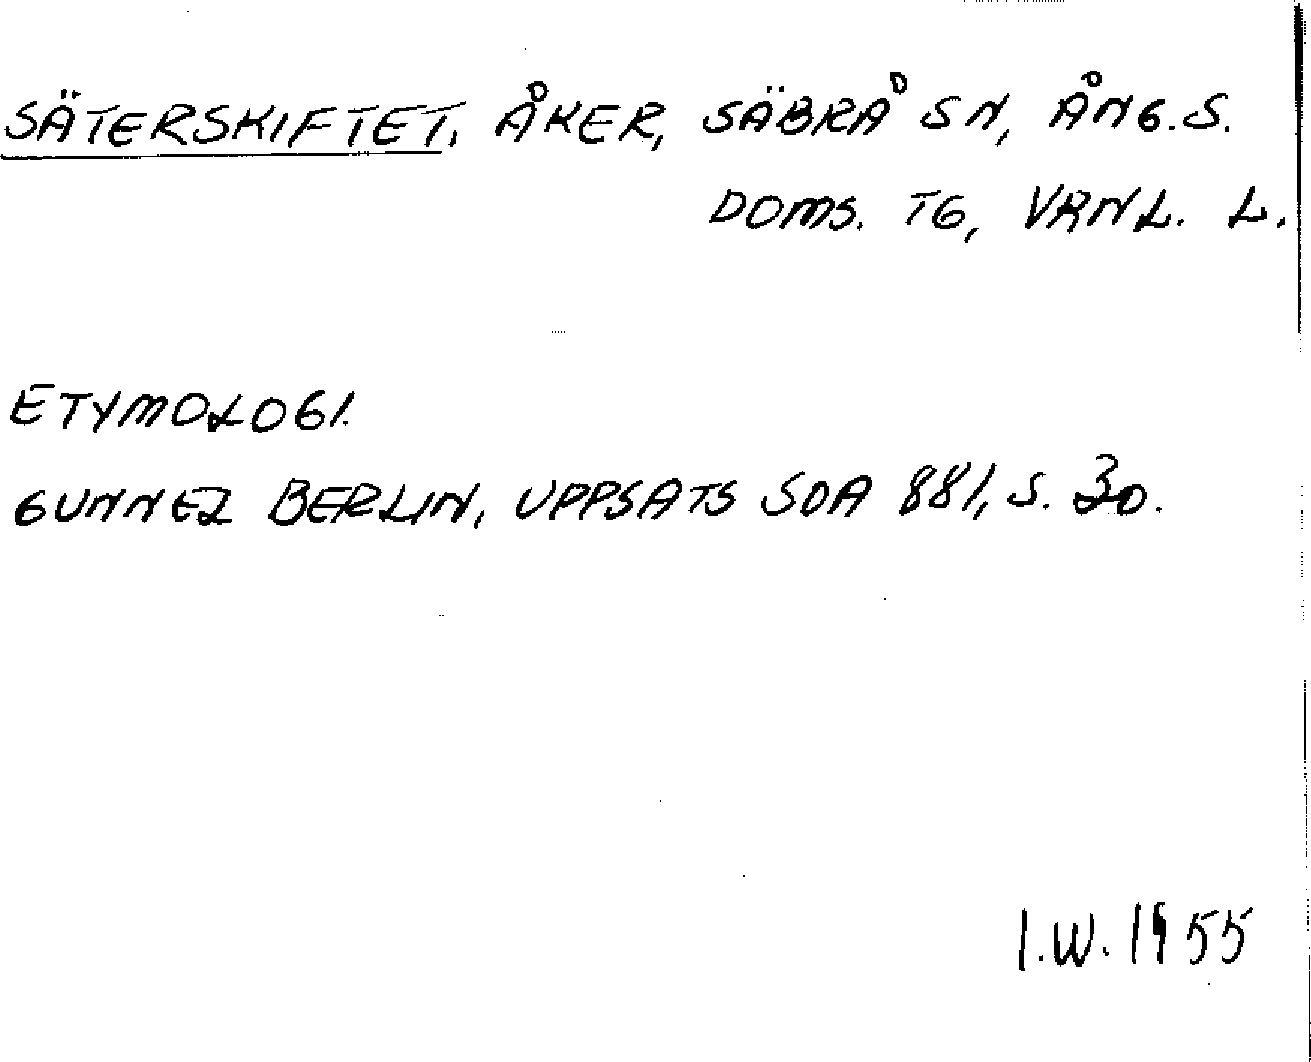 SÄTERSKIFTET, ÅKER, SÄBRÅ SN, ÅNG.S.
DOMS. TG, VRNL. L.
ETYMOLOGI.
GUNNEL BERLIN, UPPSATS SOA 881, S. 30.
I.W. 1955